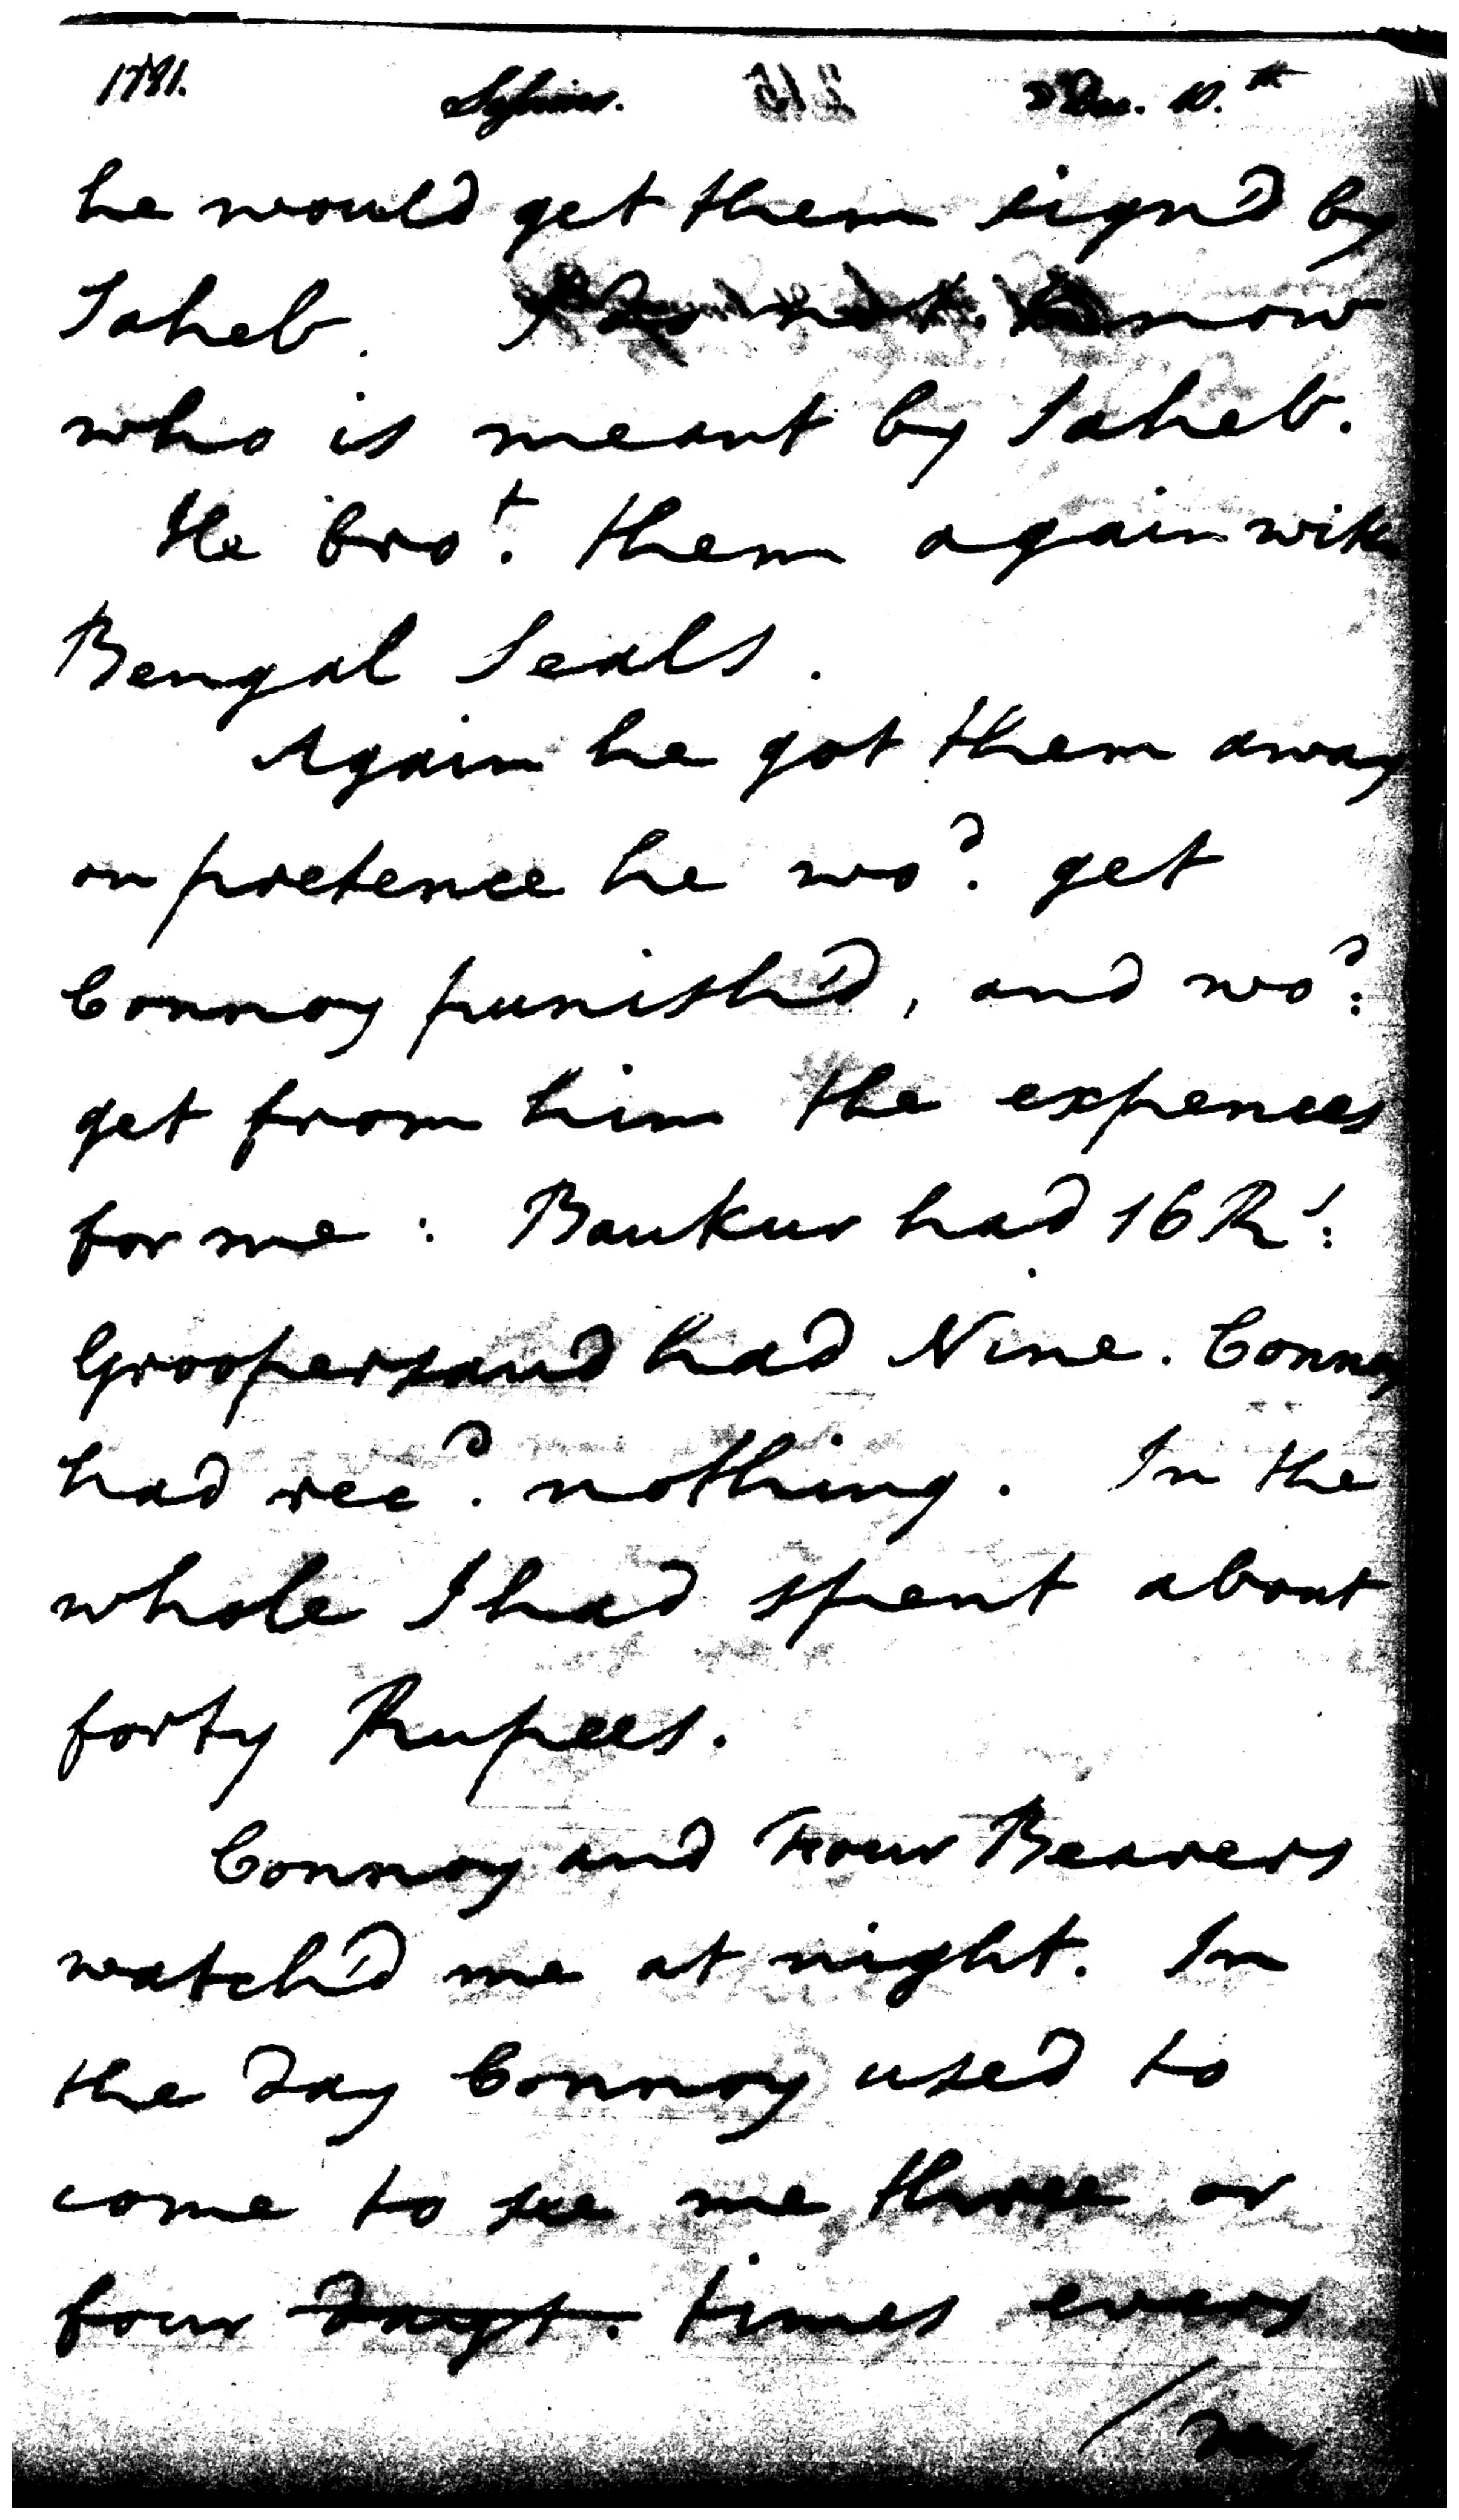 1781. Dec. 10.th
he would get them sign'd by
Saheb. I do not know
who is meant by Saheb.
He bro.t them again with
Bengal Seals.
Again he got them away
on pretence he wo.d get
Connoy punish'd, and wo.d
get from him the expences
for me : Baukur had 16 R.s
Groopersaud had Nine. Connoy
had rec.d nothing. In the
whole I had spent about
forty Rupees.
Connoy and Four Bearers
watch'd me at night. In
the day Connoy used to
come to see me three or
four days. times every
/day